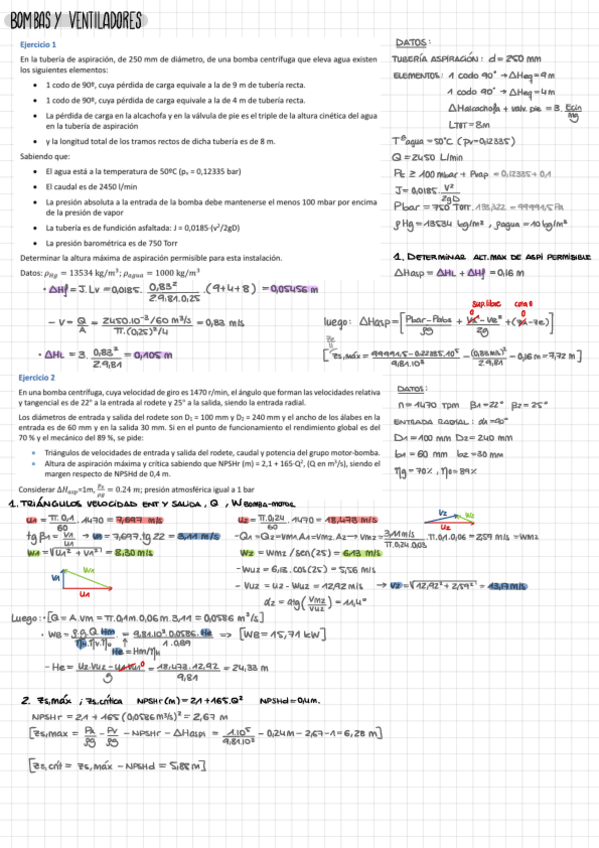 BOMBAS Y VENTILADORES
Ejercicio 1
En la tubería de aspiración, de 250 mm de diámetro, de una bomba centrífuga que eleva agua existen
los siguientes elementos:
• 1 codo de 90º, cuya pérdida de carga equivale a la de 9 m de tubería recta.
• 1 codo de 90º, cuya pérdida de carga equivale a la de 4 m de tubería recta.
• La pérdida de carga en la alcachofa y en la válvula de pie es el triple de la altura cinética del agua
en la tubería de aspiración
• y la longitud total de los tramos rectos de dicha tubería es de 8 m.
Sabiendo que:
• El agua está a la temperatura de 50ºC (pv = 0,12335 bar)
• El caudal es de 2450 l/min
• La presión absoluta a la entrada de la bomba debe mantenerse al menos 100 mbar por encima
de la presión de vapor
• La tubería es de fundición asfaltada: J = 0,0185·(v²/2gD)
• La presión barométrica es de 750 Torr
Determinar la altura máxima de aspiración permisible para esta instalación.
Datos: ρHg = 13534 kg/m³; ρagua = 1000 kg/m³
DATOS:
TUBERÍA ASPIRACIÓN: d = 250 mm
ELEMENTOS: 1 codo 90° → ΔHeq = 9 m
1 codo 90° → ΔHeq = 4 m
ΔHalcachofa + valv. pie = 3. Ecin/mg
LTOT = 8m
Tª agua = 50°C (pv=0,12335)
Q = 2450 L/min
PE ≥ 100 mbar + Pvap = 0,12335 + 0,1
J = 0,0185. V²/2gD
Pbar = 750 Torr.
ρHg = 13534 kg/m³, ρagua = 10³ kg/m³
1. DETERMINAR ALT. MAX DE ASPI PERMISIBLE
ΔHasp = ΔHL + ΔHf = 0,16 m
• ΔHf = J. Lv = 0,0185. 0,83²/2.9,81.0,25 .(9+4+8) = 0,05456 m
- V = Q/A = 2450.10⁻³/60 m³/s / π.(0,25)²/4 = 0,83 m/s
• ΔHL = 3. 0,83²/2.9,81 = 0,105 m
sup.libre cota 0
Ejercicio 2
En una bomba centrífuga, cuya velocidad de giro es 1470 r/min, el ángulo que forman las velocidades relativa
y tangencial es de 22° a la entrada al rodete y 25° a la salida, siendo la entrada radial.
Los diámetros de entrada y salida del rodete son D₁ = 100 mm y D₂ = 240 mm y el ancho de los álabes en la
entrada es de 60 mm y en la salida 30 mm. Si en el punto de funcionamiento el rendimiento global es del
70 % y el mecánico del 89 %, se pide:
• Triángulos de velocidades de entrada y salida del rodete, caudal y potencia del grupo motor-bomba.
• Altura de aspiración máxima y crítica sabiendo que NPSHr (m) = 2,1 + 165·Q², (Q en m³/s), siendo el
margen respecto de NPSHd de 0,4 m.
Considerar ΔHasp=1m, pv/ρg = 0.24 m; presión atmosférica igual a 1 bar
DATOS:
n = 1470 rpm β1 = 22° β2 = 25°
ENTRADA RADIAL: α1 = 90°
D1 = 100 mm D2 = 240 mm
b1 = 60 mm b2 = 30 mm
ηg = 70%, ηo = 89%
1. TRIÁNGULOS VELOCIDAD ENT Y SALIDA, Q, WBOMBA-MOTOR
u1 = π.0,1/60 .1470 = 7,697 m/s
u2 = π.0,24/60 .1470 = 18,473 m/s
tg β1 = V1/u1 → V1 = 7,697.tg 22 = 3,11 m/s
-Q1 = Q2 = Vm1.A1 = Vm2.A2 → Vm2 = 3,11 m/s/π.0,24.0,03 .π.0,1.0,06 = 2,59 m/s = Wm2
W1 = √u1² + V1² = 8,30 m/s
W2 = Wm2/sen(25) = 6,13 m/s
- Wu2 = 6,13. cos(25) = 5,56 m/s
- Vu2 = u2 - Wu2 = 12,92 m/s → V2 = √12,92² + 2,59² = 13,17 m/s
α2 = atg(Vm2/Vu2) = 11,4°
Luego: • [Q = A.Vm = π.0,1m.0,06m.3,11 = 0,0586 m³/s]
=> [WB = 15,71 kW]
He = Hm/ηH
- He = = 18,473.12,92/9,81 = 24,33 m
2. Zs,máx ; Zs,crítica NPSHr(m) = 2,1 + 165.Q² NPSHd = 0,4m.
NPSHr = 2,1 + 165 (0,0586 m³/s)² = 2,67 m
[Zs,max = PA/ρg - PV/ρg - NPSHr - ΔHaspi = 1.10⁵/9,81.10³ - 0,24m - 2,67 - 1 = 6,28 m]
[Zs,crit = Zs,máx - NPSHd = 5,88 m]